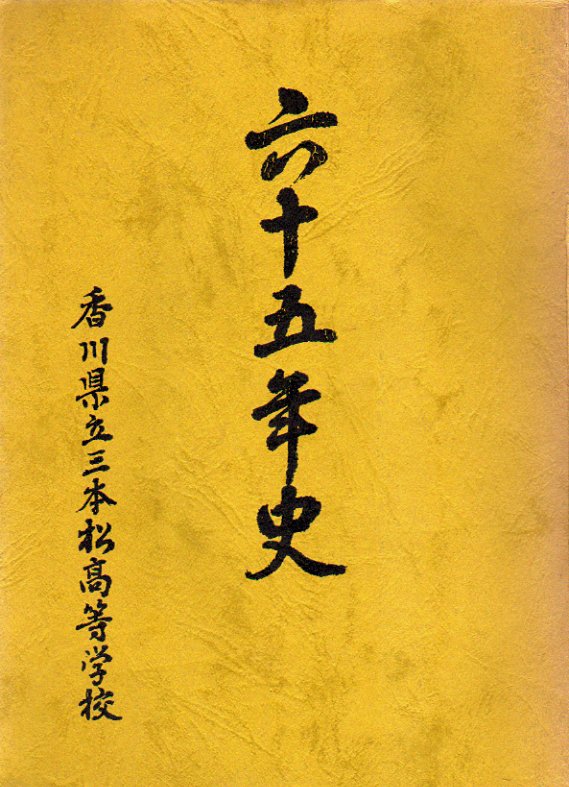 六十五年史
香川県立三本松高等学校